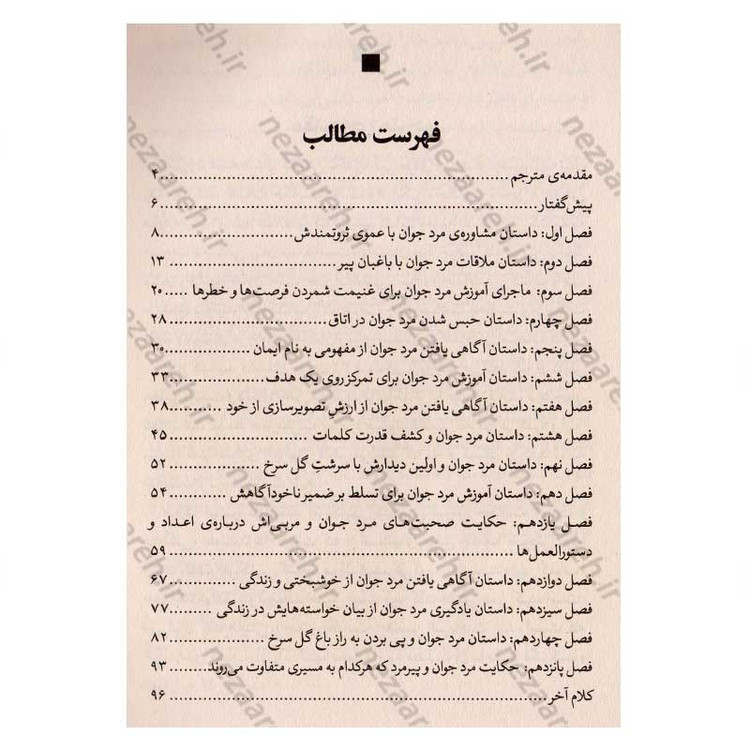 فهرست مطالب
مقدمه‌ی مترجم ........ ۴
پیش‌گفتار ........ ۶
فصل اول: داستان مشاوره‌ی مرد جوان با عموی ثروتمندش ........ ۸
فصل دوم: داستان ملاقات مرد جوان با باغبان پیر ........ ۱۳
فصل سوم: ماجرای آموزش مرد جوان برای غنیمت شمردن فرصت‌ها و خطرها ..... ۲۰
فصل چهارم: داستان حبس شدن مرد جوان در اتاق ........ ۲۸
فصل پنجم: داستان آگاهی یافتن مرد جوان از مفهومی به نام ایمان ........ ۳۰
فصل ششم: داستان آموزش مرد جوان برای تمرکز روی یک هدف ........ ۳۳
فصل هفتم: داستان آگاهی یافتن مرد جوان از ارزشِ تصویرسازی از خود ........ ۳۸
فصل هشتم: داستان مرد جوان و کشف قدرت کلمات ........ ۴۵
فصل نهم: داستان مرد جوان و اولین دیدارش با سرشتِ گل سرخ ........ ۵۲
فصل دهم: داستان آموزش مرد جوان برای تسلط بر ضمیر ناخودآگاهش ........ ۵۴
فصل یازدهم: حکایت صحبت‌های مرد جوان و مربی‌اش درباره‌ی اعداد و
دستورالعمل‌ها ........ ۵۹
فصل دوازدهم: داستان آگاهی یافتن مرد جوان از خوشبختی و زندگی ........ ۶۷
فصل سیزدهم: داستان یادگیری مرد جوان از بیان خواسته‌هایش در زندگی ........ ۷۷
فصل چهاردهم: داستان مرد جوان و پی بردن به راز باغ گل سرخ ........ ۸۲
فصل پانزدهم: حکایت مرد جوان و پیرمرد که هرکدام به مسیری متفاوت می‌روند ........ ۹۳
کلام آخر ........ ۹۶
nezaareh.ir